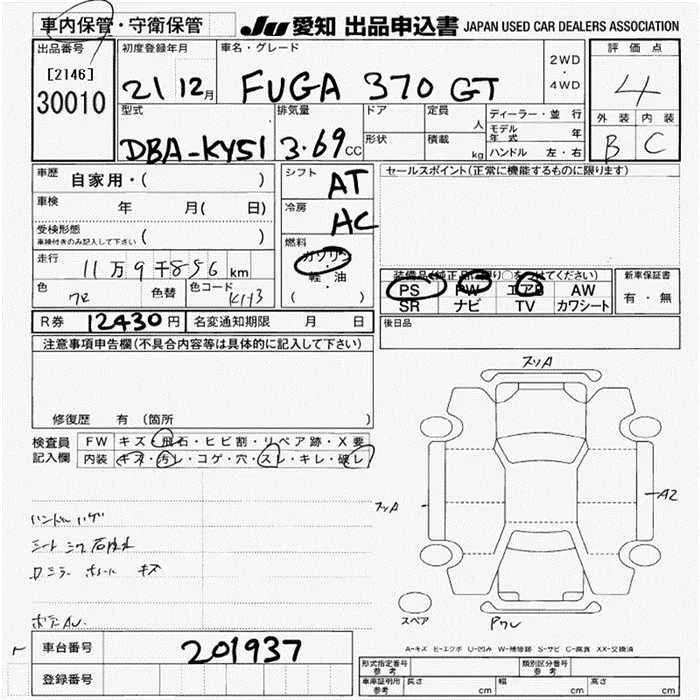 車内保管・守衛保管
JU 愛知 出品申込書 JAPAN USED CAR DEALERS ASSOCIATION
出品番号
[2146]
30010
初度登録年月
21 12月
車名・グレード
FUGA 370 GT
2WD
・
4WD
評価点
4
外装 内装
B C
型式
DBA-KY51
排気量
3.69cc
ドア
形状
定員 人
積載 kg
ディーラー・並行
モデル年式 年
ハンドル 左・右
車歴 自家用・( )
車検 年 月( 日)
受検形態
車検付きのみ記入して下さい ( )
走行 11万9千856 km
色
色替
色コード
シフト AT
冷房 AC
燃料
ガソリン
軽・油
( ・ )
セールスポイント(正常に機能するものに限ります)
装備品(純正品に限り〇をつけてください)
PS PW エアB AW
SR ナビ TV カワシート
新車保証書
有・無
後日品
R券 12430円 名変通知期限 月 日
注意事項申告欄(不具合内容等は具体的に記入して下さい)
修復歴 有 (箇所 )
検査員記入欄
FW キズ・飛石・ヒビ割・リペア跡・X要
内装 キズ・汚レ・コゲ・穴・スレ・キレ・破レ
ハンドル ハゲ
スソA
スソA
A2
スペア
A-キズ E-エクボ U-凹み W-補修跡 S-サビ C-腐食 XX-交換済
車台番号 201937
登録番号
形式指定番号
参考
類別区分番号
参考
車庫証明用
参考
長さ cm 幅 cm 高さ cm